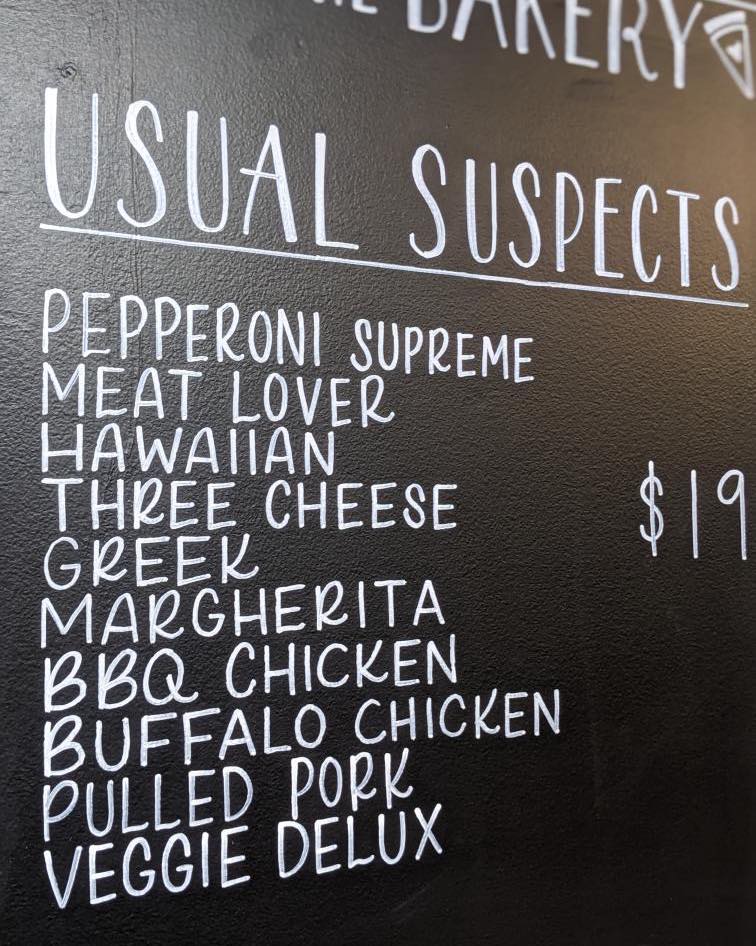 BAKERY
USUAL SUSPECTS
PEPPERONI SUPREME
MEAT LOVER
HAWAIIAN
THREE CHEESE
$19
GREEK
MARGHERITA
BBQ CHICKEN
BUFFALO CHICKEN
PULLED PORK
VEGGIE DELUX